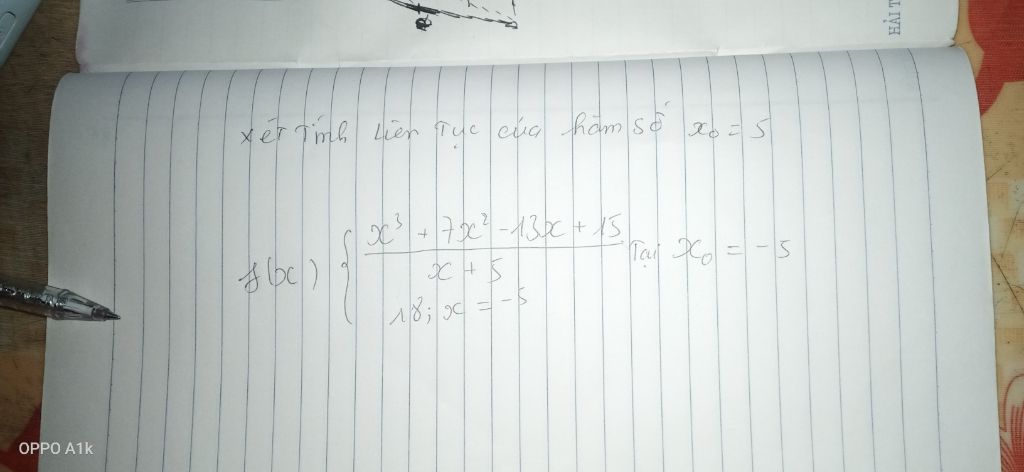 xét Tính Liên Tục của hàm số x₀ = 5
f(x) { x³ + 7x² - 13x + 15 / x + 5 Tại x₀ = -5
18; x = -5
HẢI T
OPPO A1k